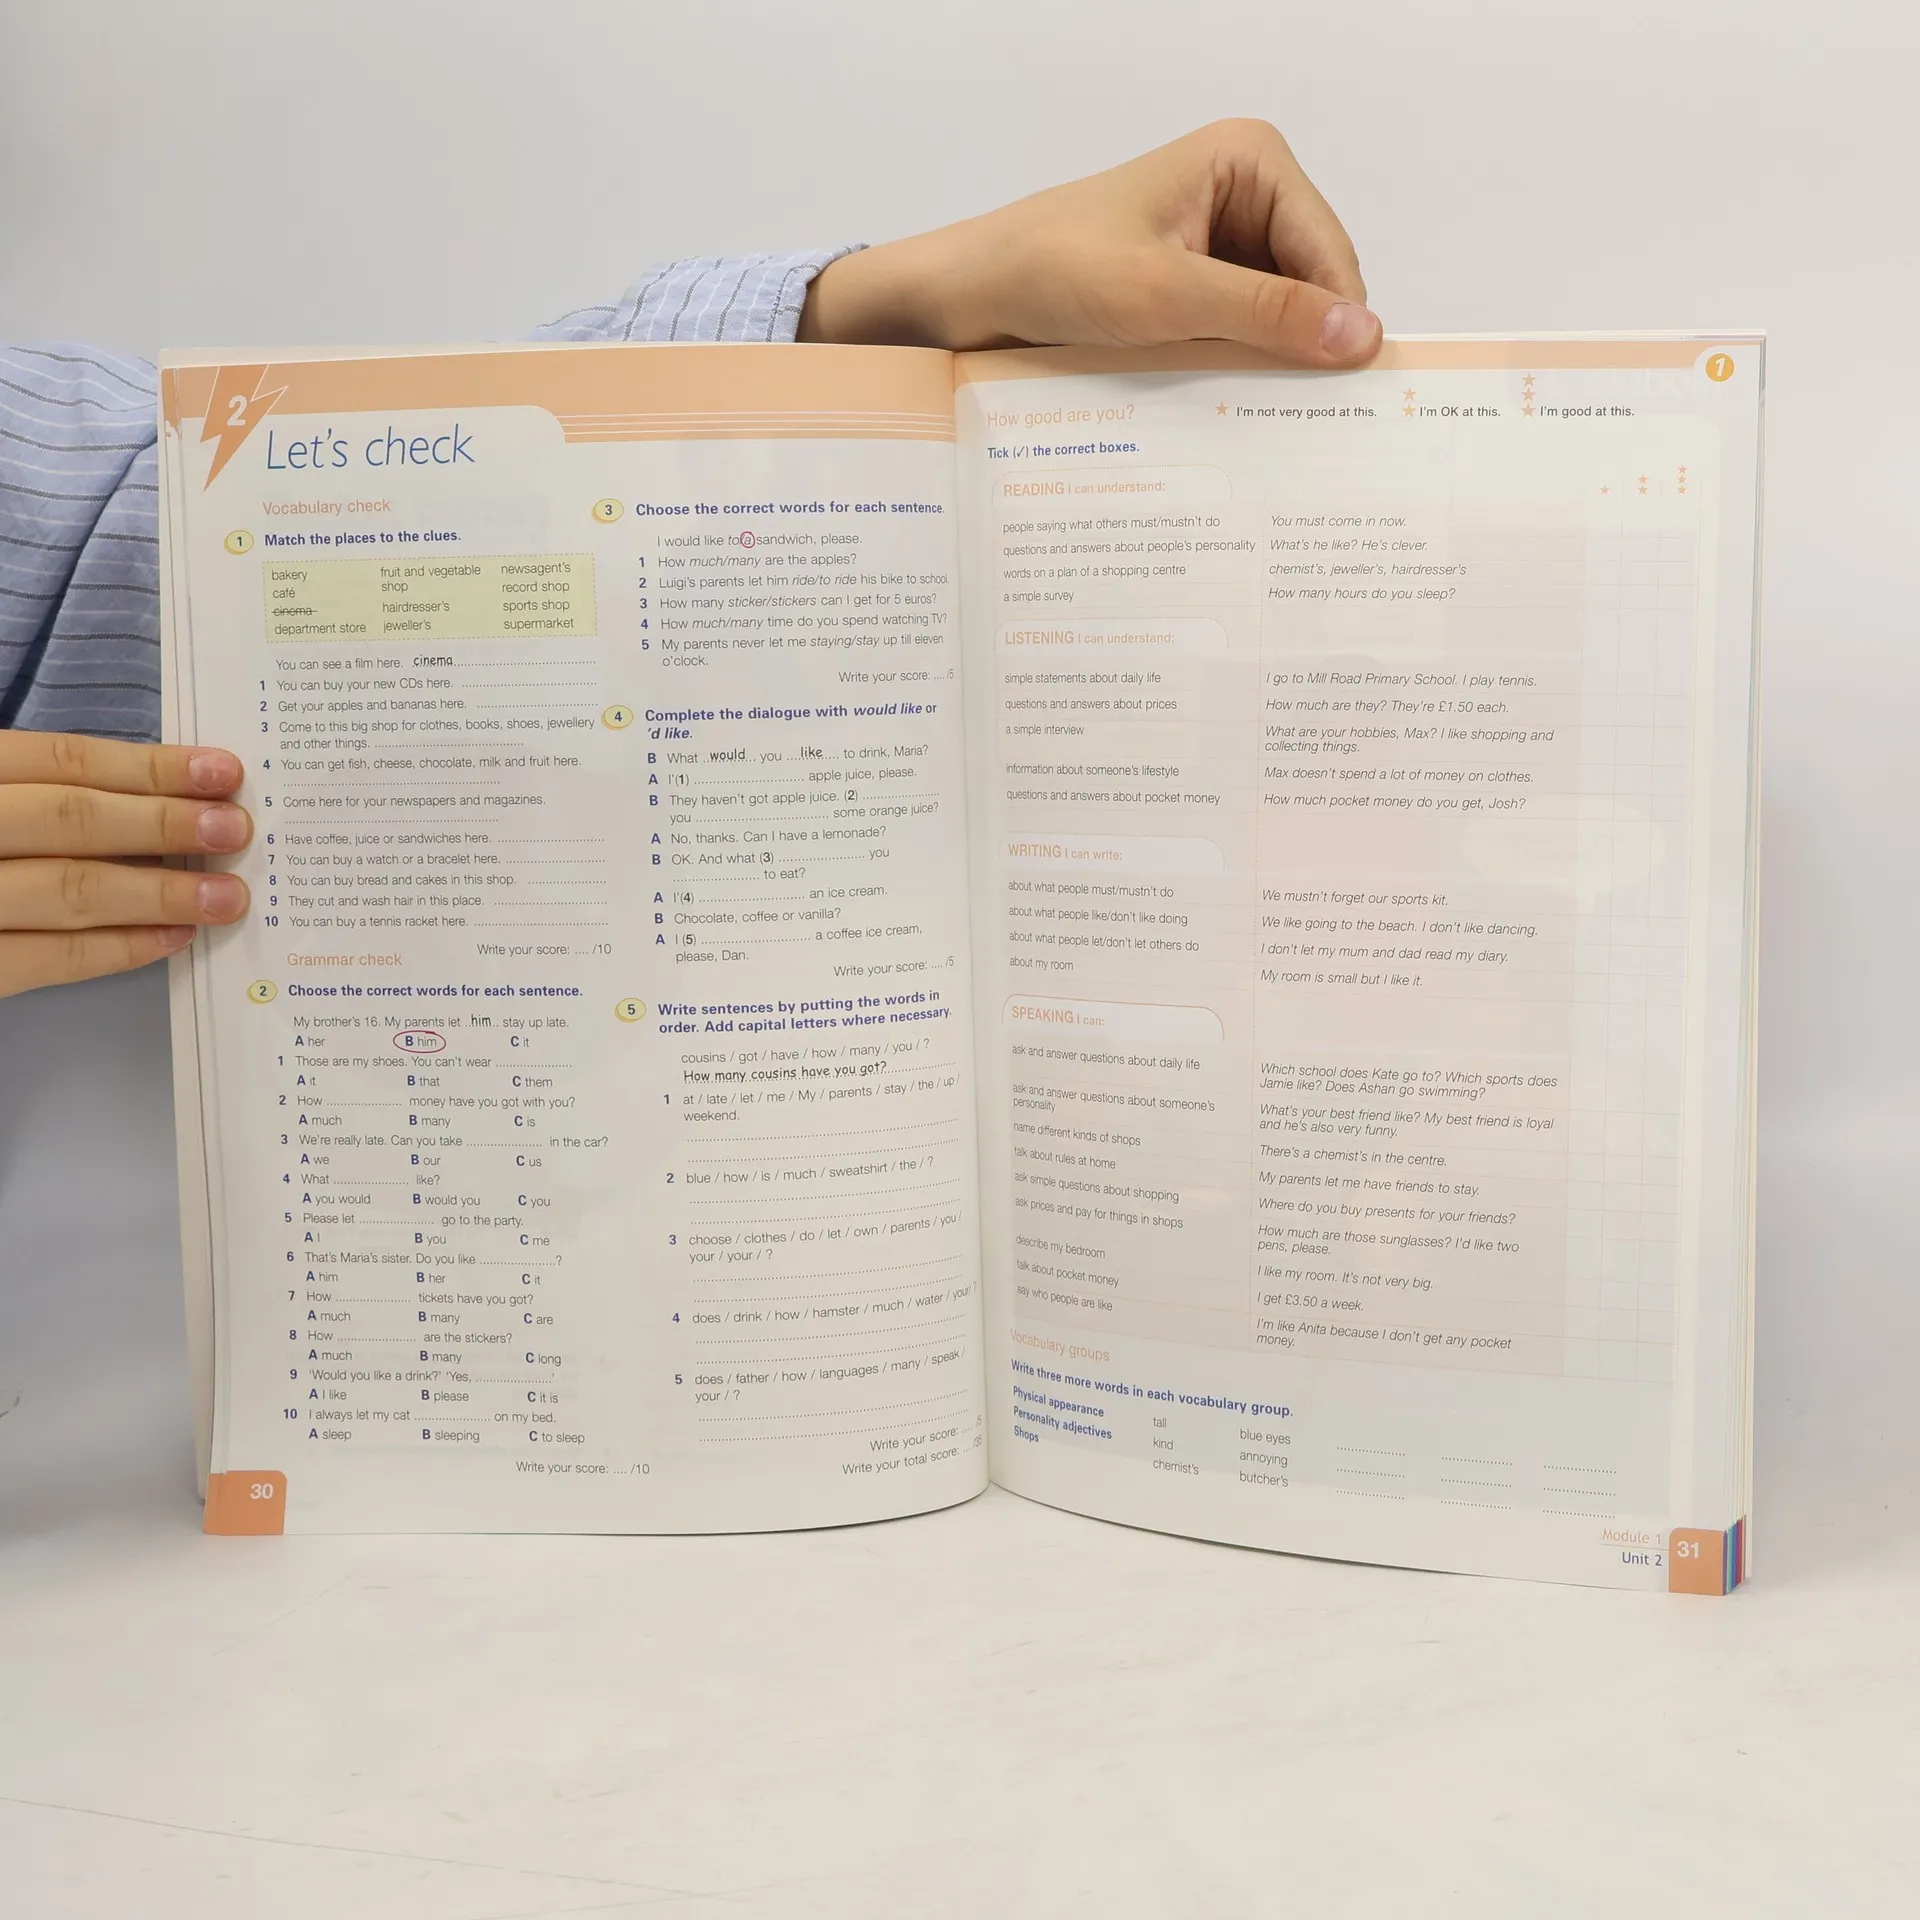 2
Let's check
Vocabulary check
1 Match the places to the clues.
bakery
café
cinema
department store
fruit and vegetable
shop
hairdresser's
jeweller's
newsagent's
record shop
sports shop
supermarket
You can see a film here. cinema
1 You can buy your new CDs here. ....................
2 Get your apples and bananas here. ....................
3 Come to this big shop for clothes, books, shoes, jewellery
and other things. ....................
4 You can get fish, cheese, chocolate, milk and fruit here.
....................
5 Come here for your newspapers and magazines.
....................
6 Have coffee, juice or sandwiches here. ....................
7 You can buy a watch or a bracelet here. ....................
8 You can buy bread and cakes in this shop. ....................
9 They cut and wash hair in this place. ....................
10 You can buy a tennis racket here. ....................
Write your score: .... /10
Grammar check
2 Choose the correct words for each sentence.
My brother's 16. My parents let ..him.. stay up late.
A her B him C it
1 Those are my shoes. You can't wear ....................
A it B that C them
2 How .................... money have you got with you?
A much B many C is
3 We're really late. Can you take .................... in the car?
A we B our C us
4 What .................... like?
A you would B would you C you
5 Please let .................... go to the party.
A I B you C me
6 That's Maria's sister. Do you like ....................?
A him B her C it
7 How .................... tickets have you got?
A much B many C are
8 How .................... are the stickers?
A much B many C long
9 'Would you like a drink?' 'Yes, ....................'
A I like B please C it is
10 I always let my cat .................... on my bed.
A sleep B sleeping C to sleep
Write your score: .... /10
30
3 Choose the correct words for each sentence.
I would like to/a sandwich, please.
1 How much/many are the apples?
2 Luigi's parents let him ride/to ride his bike to school.
3 How many sticker/stickers can I get for 5 euros?
4 How much/many time do you spend watching TV?
5 My parents never let me staying/stay up till eleven
o'clock.
Write your score: .... /5
4 Complete the dialogue with would like or
'd like.
B What ..would... you ...like.... to drink, Maria?
A I'(1) .................... apple juice, please.
B They haven't got apple juice. (2) ....................
you .................... some orange juice?
A No, thanks. Can I have a lemonade?
B OK. And what (3) .................... you
.................... to eat?
A I'(4) .................... an ice cream.
B Chocolate, coffee or vanilla?
A I (5) .................... a coffee ice cream,
please, Dan.
Write your score: .... /5
5 Write sentences by putting the words in
order. Add capital letters where necessary.
cousins / got / have / how / many / you / ?
How many cousins have you got?
1 at / late / let / me / My / parents / stay / the / up /
weekend.
2 blue / how / is / much / sweatshirt / the / ?
3 choose / clothes / do / let / own / parents / you /
your / your / ?
4 does / drink / how / hamster / much / water / your/ ?
5 does / father / how / languages / many / speak /
your / ?
Write your score: .... /5
Write your total score: .... /35
1
How good are you?
I'm not very good at this. I'm OK at this. I'm good at this.
Tick (✓) the correct boxes.
READING I can understand:
people saying what others must/mustn't do You must come in now.
questions and answers about people's personality What's he like? He's clever.
words on a plan of a shopping centre chemist's, jeweller's, hairdresser's
a simple survey How many hours do you sleep?
LISTENING I can understand:
simple statements about daily life I go to Mill Road Primary School. I play tennis.
questions and answers about prices How much are they? They're £1.50 each.
a simple interview What are your hobbies, Max? I like shopping and
collecting things.
information about someone's lifestyle Max doesn't spend a lot of money on clothes.
questions and answers about pocket money How much pocket money do you get, Josh?
WRITING I can write:
about what people must/mustn't do We mustn't forget our sports kit.
about what people like/don't like doing We like going to the beach. I don't like dancing.
about what people let/don't let others do I don't let my mum and dad read my diary.
about my room My room is small but I like it.
SPEAKING I can:
ask and answer questions about daily life Which school does Kate go to? Which sports does
Jamie like? Does Ashan go swimming?
ask and answer questions about someone's
personality What's your best friend like? My best friend is loyal
and he's also very funny.
name different kinds of shops There's a chemist's in the centre.
talk about rules at home My parents let me have friends to stay.
ask simple questions about shopping Where do you buy presents for your friends?
ask prices and pay for things in shops How much are those sunglasses? I'd like two
pens, please.
describe my bedroom I like my room. It's not very big.
talk about pocket money I get £3.50 a week.
say who people are like I'm like Anita because I don't get any pocket
money.
Vocabulary groups
Write three more words in each vocabulary group.
Physical appearance tall blue eyes
Personality adjectives kind annoying
Shops chemist's butcher's
Module 1
Unit 2
31